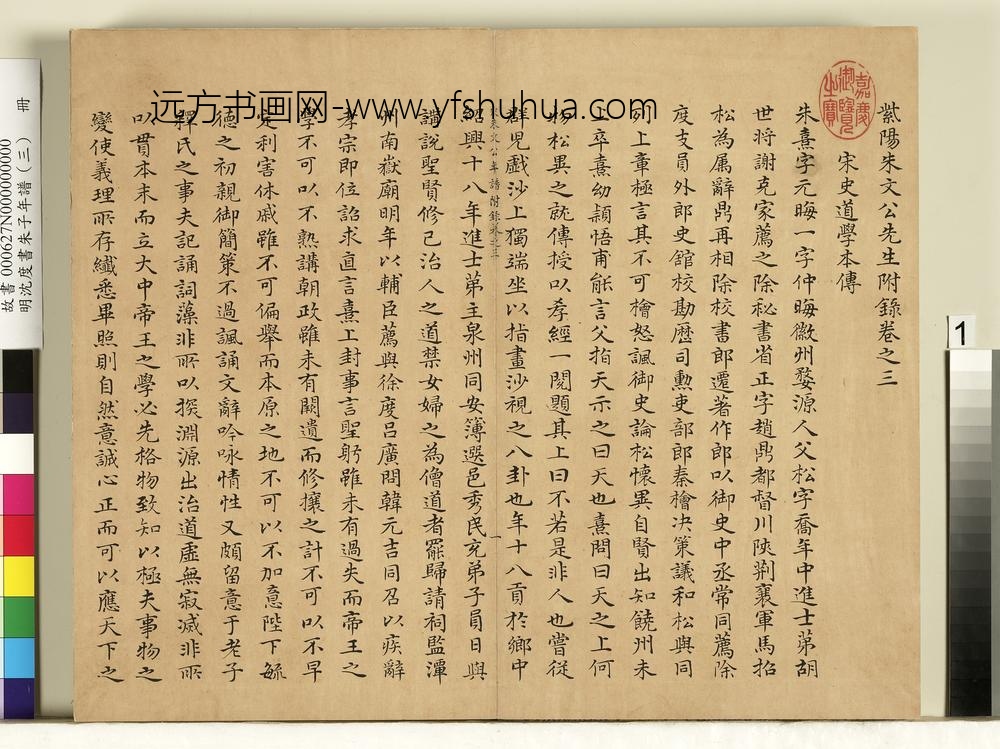 紫陽朱文公先生附錄卷之三
宋史道學本傳
朱熹字元晦一字仲晦徽州婺源人父松字喬年中進士第胡
世将謝克家薦之除秘書省正字趙鼎都督川陝荆襄軍馬招
松為属辭鼎再相除校書郎遷著作郎以御史中丞常同薦除
度支員外郎史館校勘歷司勳吏部郎秦檜决策議和松與同
列上章極言其不可檜怒諷御史論松懷異自賢出知饒州未
上卒熹幼穎悟甫能言父指天示之曰天也熹問曰天之上何
物松異之就傳授以孝經一閱題其上曰不若是非人也嘗從
群兒戲沙上獨端坐以指畫沙視之八卦也年十八貢於鄉中
朱文公年譜附錄卷之三
一
紹興十八年進士第主泉州同安簿選邑秀民充弟子員日與
講說聖賢修己治人之道禁女婦之為僧道者罷歸請祠監潭
州南嶽廟明年以輔臣薦與徐度呂廣問韓元吉同召以疾辭
孝宗即位詔求直言熹上封事言聖躬雖未有過失而帝王之
學不可以不熟講朝政雖未有闕遺而修攘之計不可以不早
定利害休戚雖不可徧舉而本原之地不可以不加意陛下毓
德之初親御簡策不過諷誦文辭吟咏情性又頗留意于老子
釋氏之事夫記誦詞藻非所以探淵源出治道虛無寂滅非所
以貫本末而立大中帝王之學必先格物致知以極夫事物之
變使義理所存纖悉畢照則自然意誠心正而可以應天下之
嘉慶御覽之寶
远方书画网-www.yfshuhua.com
冊
故書000627N000000000
明沈度書朱子年譜（三）
1